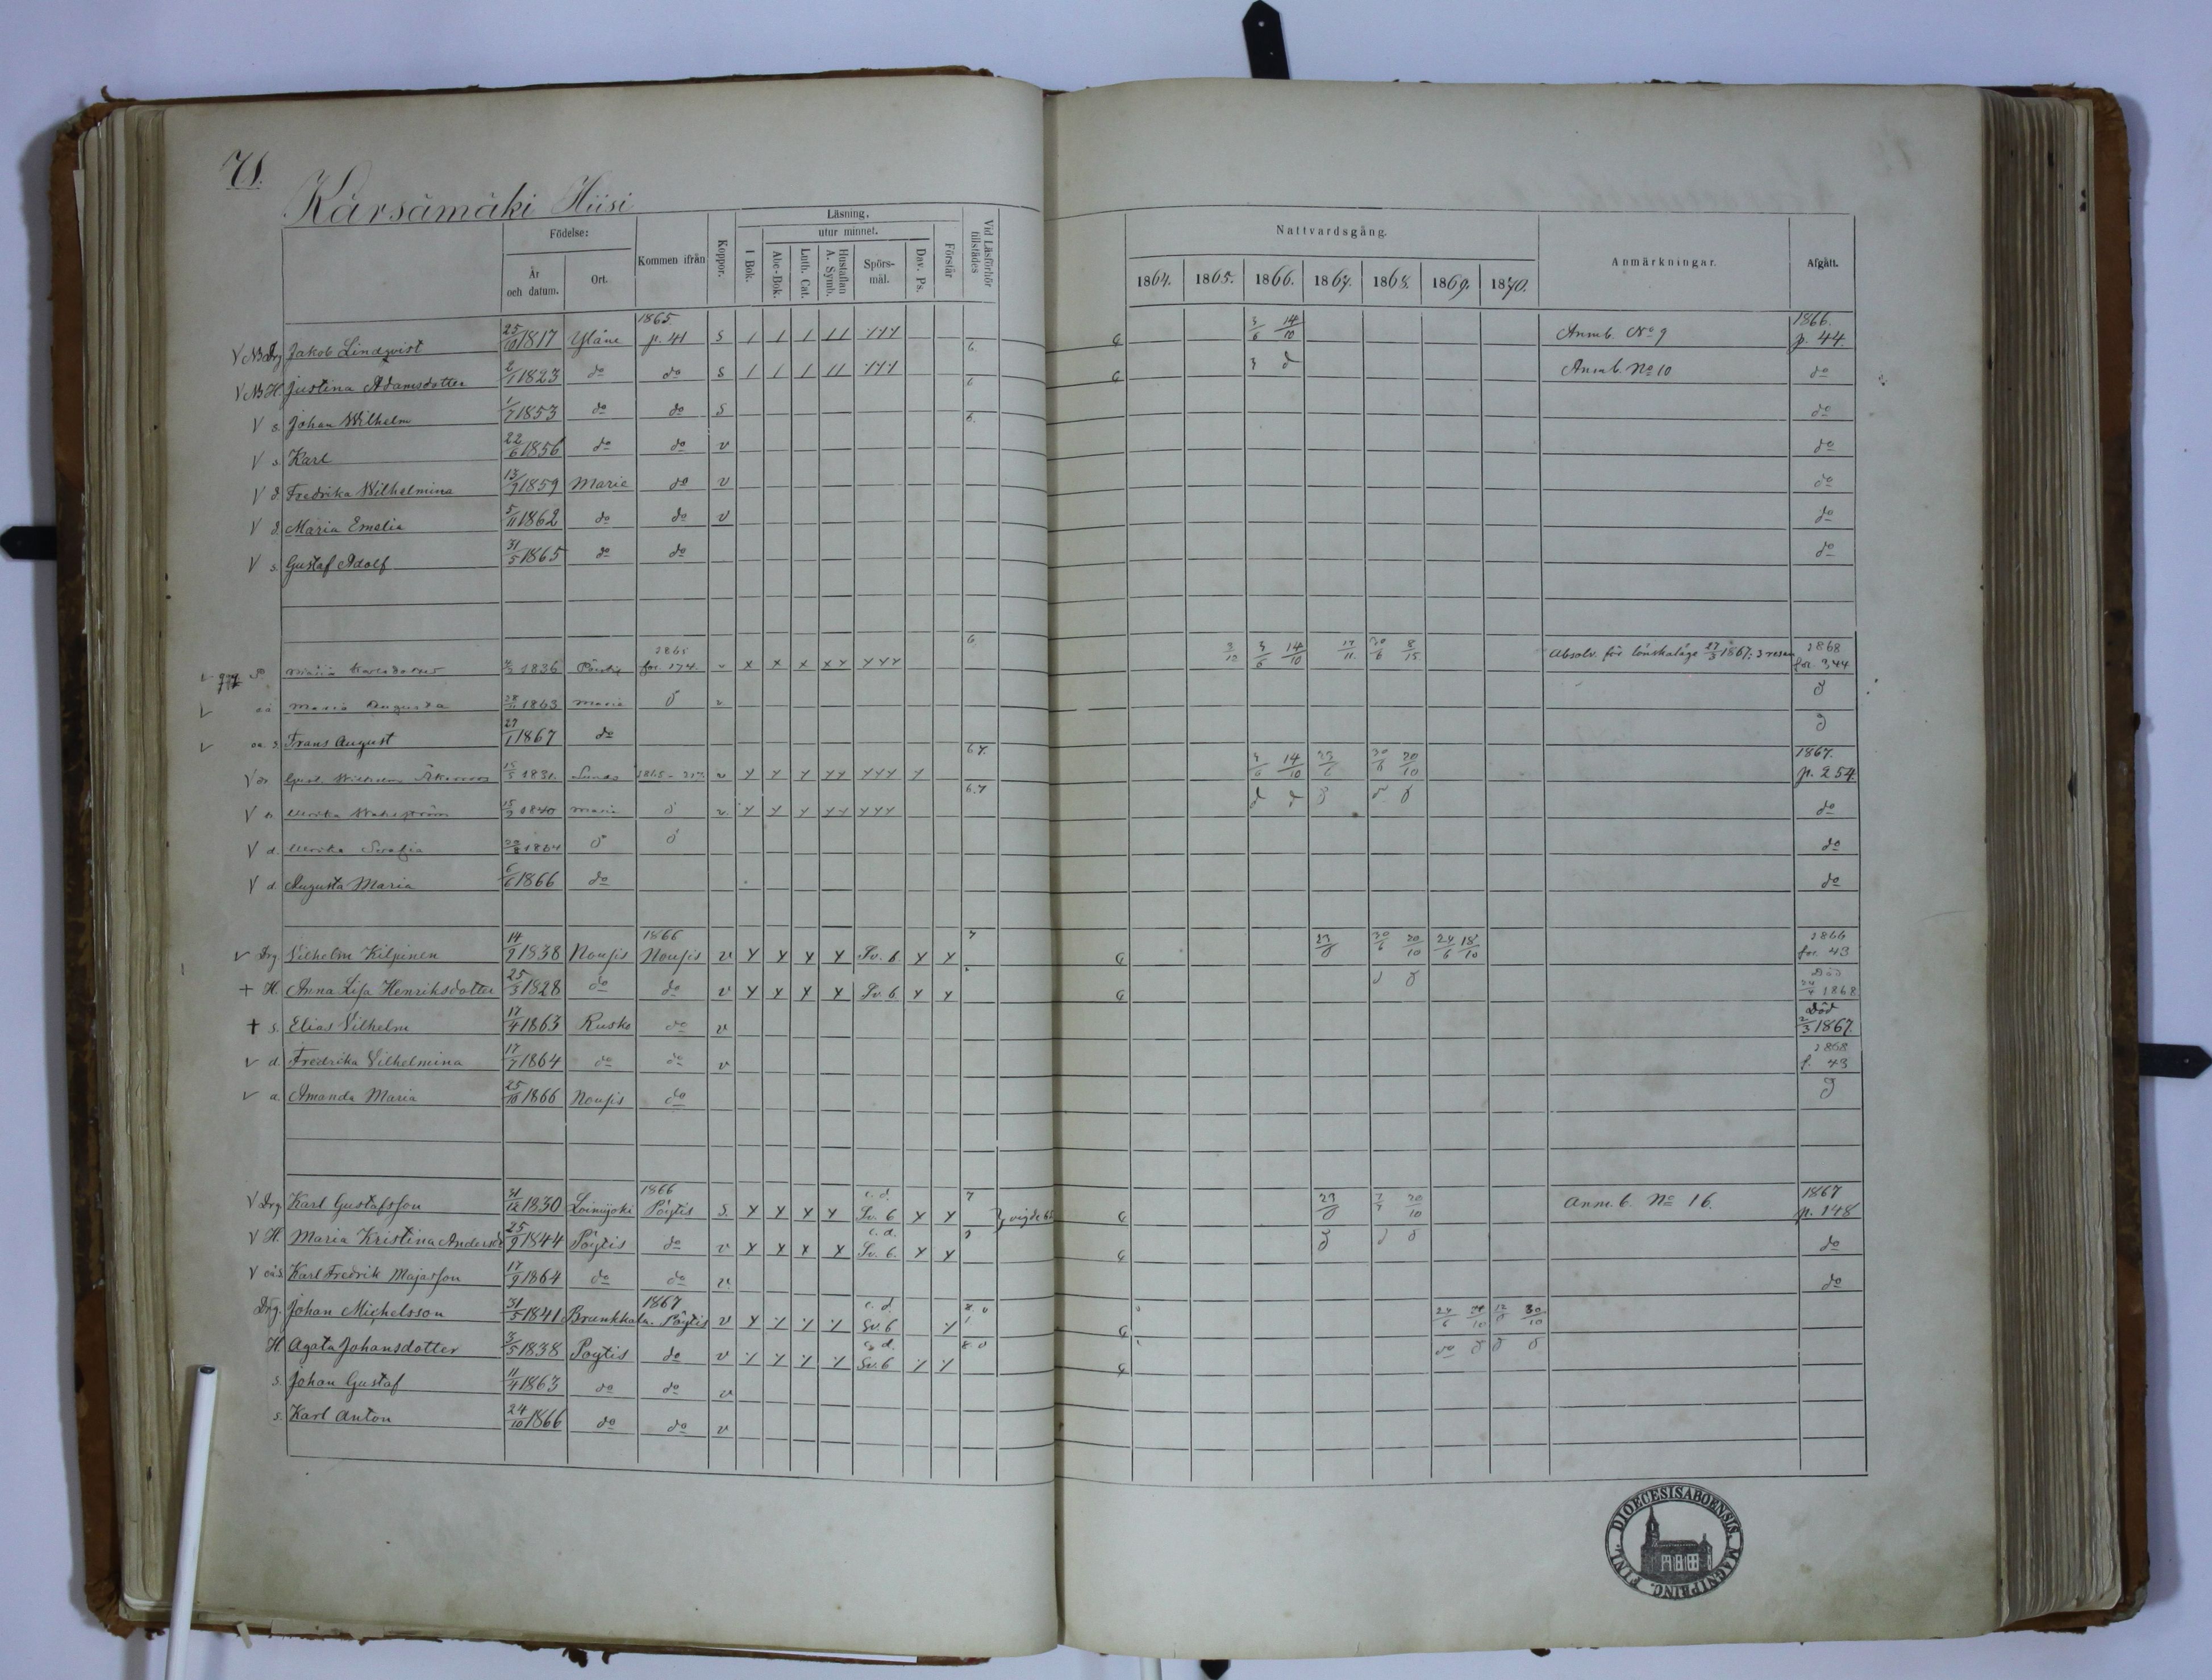 71.
Kärsämäki Hiisi
Födelse:
År och datum.
Ort.
Kommen ifrån
Koppor.
Läsning.
utur minnet.
I Bok.
Abc-Bok.
Luth. Cat.
Hustaflan A. Symb.
Spörs-mål.
Dav. Ps.
Förstår
Vid Läsförhör tillstädes
Nattvardsgång.
1864. 1865. 1866. 1867. 1868. 1869. 1870.
Anmärkningar.
Afgått.
V NB Drg Jakob Lindqvist 25/10 1817 Yläne 1865. p. 41 s 6. 3/6 14/10 Anmb. No 9 1866. p. 44.
V NB H. Justina Adamsdotter 2/1 1823 do do s 6 Anmb. No 10 do
V s. Johan Wilhelm 1/7 1853 do do s 6. do
V s. Karl 22/6 1856 do do v do
V d. Fredrika Wilhelmina 13/9 1859 Marie do v do
V d. Maria Emelia 5/11 1862 do do v do
V s. Gustaf Adolf 31/5 1865 do do do
Maria 1836 1865 fol. 174. x x x x x 6 3/6 14/10 17/11 30/6 Absolv. för lönskaläge 27/3 1867: 3 resan 1868
Maria Augusta 1863 Marie
oä. s. Frans August 27/1 1867 do
Wilhelm 15/5 1831. 6 7. 3/6 14/10 30/6 20/10 1867. p. 254.
Ulrika 15/3 1840 Marie 6.7 do
V d. Ulrika 1864 do
V d Augusta Maria 6/6 1866 do do
V Drg Vilhelm Kilpinen 14/9 1838 Nousis 1866 Nousis v Sv. 6. 7 30/6 20/10 24/6 18/10 43
+ H. Anna Lisa Henriksdotter 25/3 1828 do do v Sv. 6. Död 24/4 1868
+ s. Elias Vilhelm 17/4 1863 Rusko do v Död 2/3 1867.
V d. Fredrika Vilhelmina 17/7 1864 do do v 1868 f. 43
V d. Amanda Maria 25/10 1866 Nousis do
V Drg Karl Gustafsson 31/12 1830 Loimijoki 1866 Pöytis s. c. d. Sv. 6 7 vigde 20/10 Anm. b. No 16. 1867 p. 148
V H. Maria Kristina Andersd 25/9 1844 Pöytis do v c. d. Sv. 6. do
V oä. s. Karl Fredrik Majasson 17/9 1864 do do v. do
Drg. Johan Michelsson 31/5 1841 Brunkkala. 1867 Pöytis v c. d. Sv. 6 24/6 30/10
H. Agata Johansdotter 3/5 1838 Pöytis do v c. d. Sv. 6 do
s. Johan Gustaf 11/4 1863 do do v
s. Karl Anton 24/10 1866 do do v
DIOECESIS ABOENSIS. MAGNI PRINC. FINL.